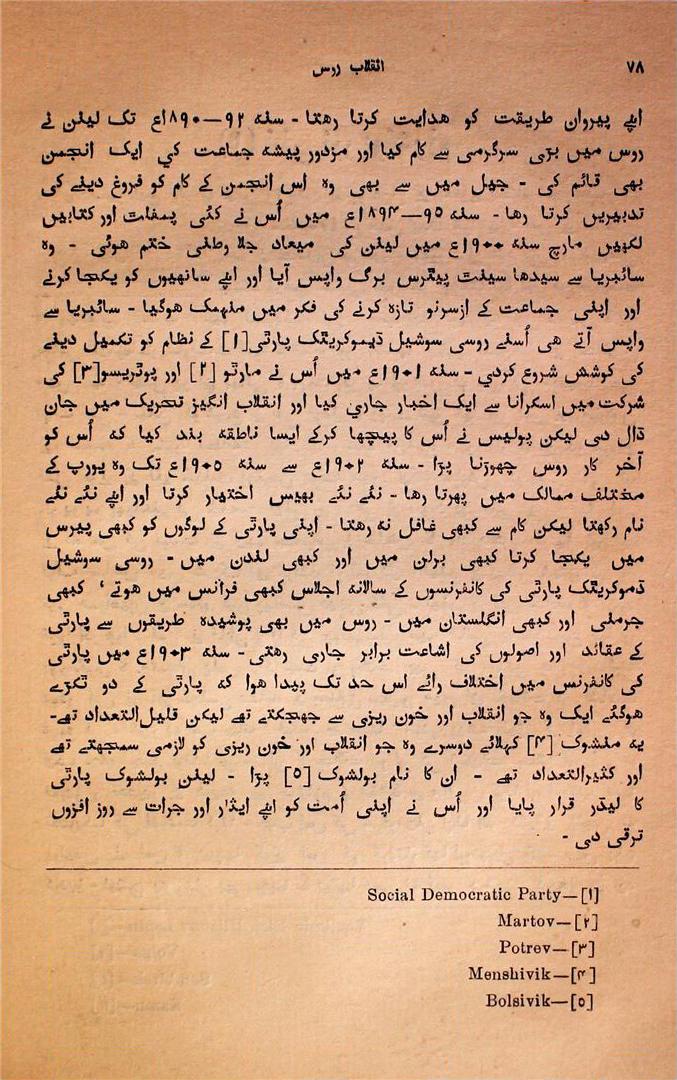 ۷۸ انقلاب روس
اپنے پیروان طریقت کو ہدایت کرتا رہتا - سنہ ۹۲—۱۸۹۰ع تک لینن نے
روس میں بڑی سرگرمی سے کام کیا اور مزدور پیشہ جماعت کی ایک انجمن
بھی قائم کی - جیل میں سے بھی وہ اس انجمن کے کام کو فروغ دینے کی
تدبیریں کرتا رہا - سنہ ۹۵—۱۸۹۴ع میں اُس نے کئی پمفلٹ اور کتابیں
لکھیں مارچ سنہ ۱۹۰۰ع میں لینن کی میعاد جلا وطنی ختم ہوئی - وہ
سائبریا سے سیدھا سینٹ پیٹرس برگ واپس آیا اور اپنے ساتھیوں کو یکجا کرنے
اور اپنی جماعت کے ازسرنو تازہ کرنے کی فکر میں منہمک ہوگیا - سائبریا سے
واپس آتے ہی اُسنے روسی سوشیل ڈیموکریٹک پارٹی[۱] کے نظام کو تکمیل دینے
کی کوشش شروع کردی - سنہ ۱۹۰۱ع میں اُس نے مارٹو [۲] اور پوٹریسو[۳] کی
شرکت میں اسکرانا سے ایک اخبار جاری کیا اور انقلاب انگیز تحریک میں جان
ڈال دی لیکن پولیس نے اُس کا پیچھا کرکے ایسا ناطقہ بند کیا کہ اُس کو
آخر کار روس چھوڑنا پڑا - سنہ ۱۹۰۲ع سے سنہ ۱۹۰۵ع تک وہ یورپ کے
مختلف ممالک میں پھرتا رہا - نئے نئے بھیس اختیار کرتا اور اپنے نئے نئے
نام رکھتا لیکن کام سے کبھی غافل نہ رہتا - اپنی پارٹی کے لوگوں کو کبھی پیرس
میں یکجا کرتا کبھی برلن میں اور کبھی لندن میں - روسی سوشیل
ڈموکریٹک پارٹی کی کانفرنسوں کے سالانہ اجلاس کبھی فرانس میں ہوتے ، کبھی
جرمنی اور کبھی انگلستان میں - روس میں بھی پوشیدہ طریقوں سے پارٹی
کے عقائد اور اصولوں کی اشاعت برابر جاری رہتی - سنہ ۱۹۰۳ع میں پارٹی
کی کانفرنس میں اختلاف رائے اس حد تک پیدا ہوا کہ پارٹی کے دو ٹکڑے
ہوگئے ایک وہ جو انقلاب اور خون ریزی سے جھجکتے تھے لیکن قلیل‌التعداد تھے-
یہ منشوک [۴] کہلائے دوسرے وہ جو انقلاب اور خون ریزی کو لازمی سمجھتے تھے
اور کثیرالتعداد تھے - ان کا نام بولشوک [۵] پڑا - لینن بولشوک پارٹی
کا لیڈر قرار پایا اور اُس نے اپنی اُمت کو اپنے ایثار اور جرات سے روز افزوں
ترقی دی -
Social Democratic Party—[۱]
Martov—[۲]
Potrev—[۳]
Menshivik—[۴]
Bolsivik—[۵]